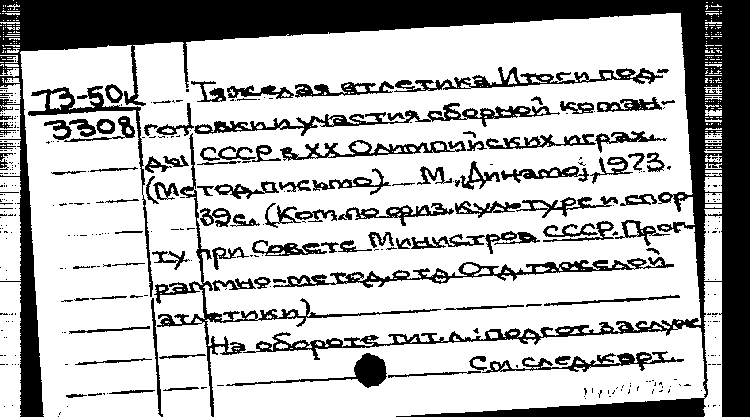 73-50к
3308
Тяжелая атлетика. Итоги под-
готовки и участия сборной коман-
ды СССР в XX Олимпийских играх.
(Метод. письмо). М., "Динамо", 1973.
39с. (Ком. по физ. культуре и спор-
ту при Совете Министров СССР. Прог-
раммно-метод. отд. Отд. тяжелой
атлетики).
На обороте тит. л.: подгот. заслуж
См. след. карт.